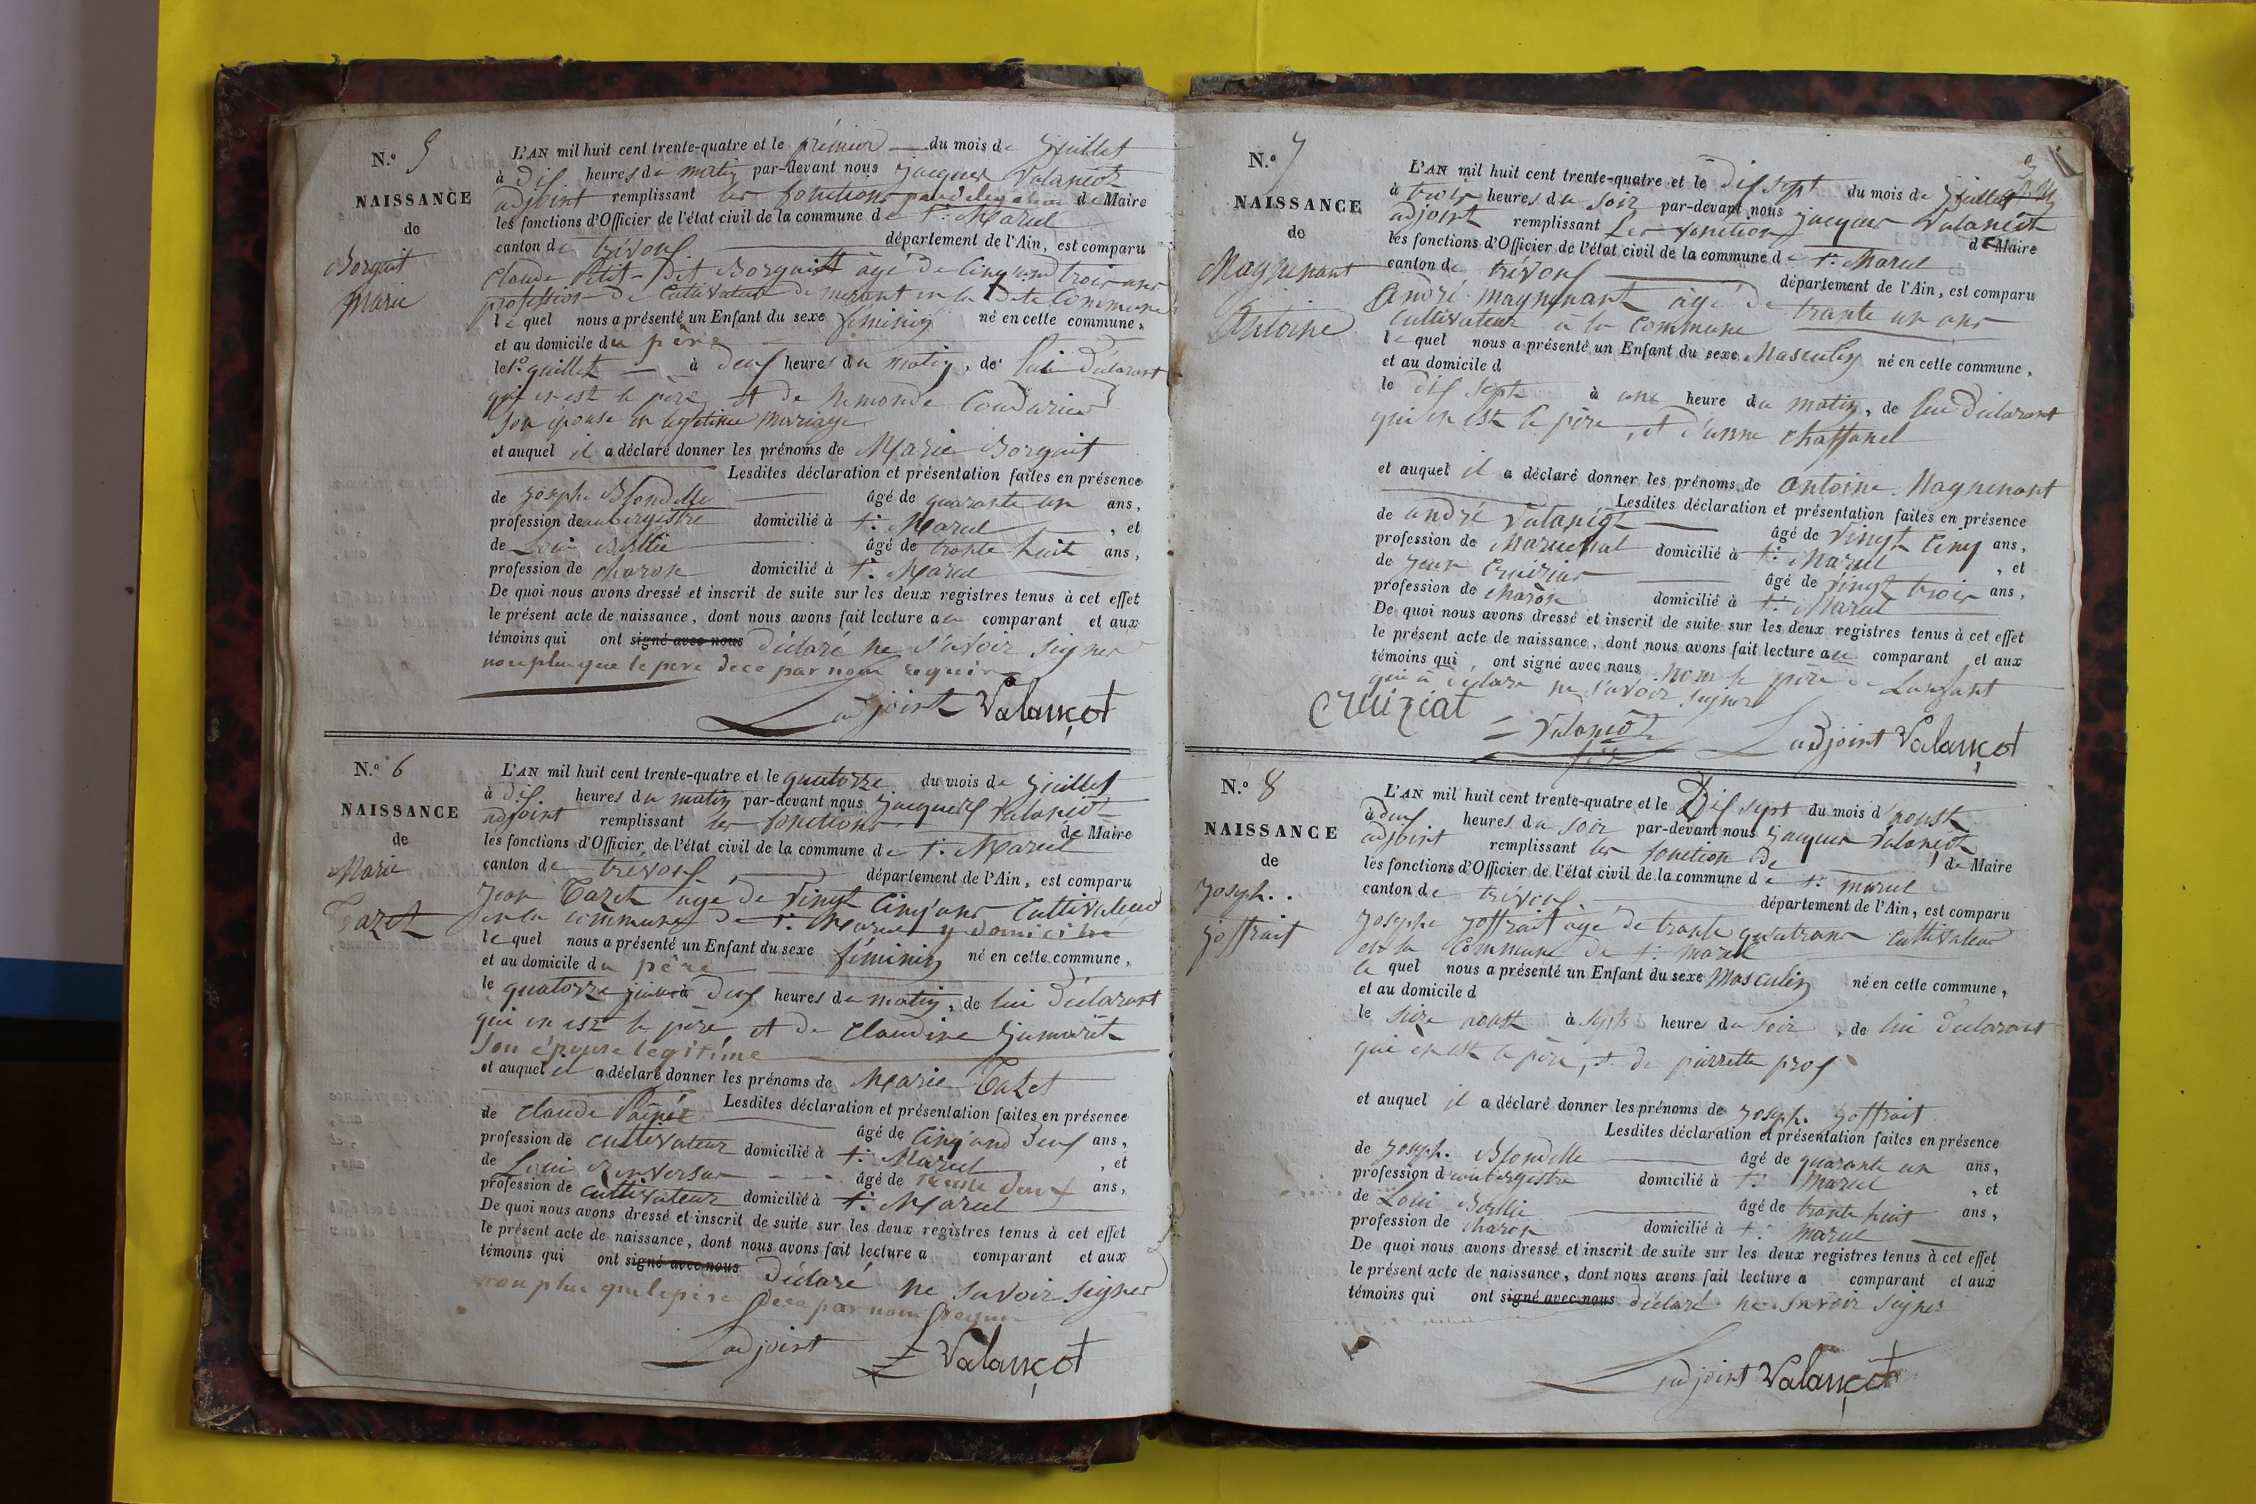 N.° 5
NAISSANCE
de
Borgait
Marie
L'AN mil huit cent trente-quatre et le prémier du mois de Juillet
à dix heures du matin par-devant nous jacques Valançot
adjoint remplissant les fonctions par délégation de Maire
les fonctions d'Officier de l'état civil de la commune de St. Marcel
canton de trévoux département de l'Ain, est comparu
Claude dit Borgait âgé de Cinquand trois ans
profession de Cultivateur demeurant en la dite Commune
lequel nous a présenté un Enfant du sexe féminin né en cette commune,
et au domicile du père
le 1er juillet à deux heures du matin, de lui déclarant
qui en est le père et de
son épouse en légitime mariage
et auquel il a déclaré donner les prénoms de Marie Borgait
Lesdites déclaration et présentation faites en présence
de Joseph Blondelle âgé de quarante un ans,
profession de aubergistre domicilié à St. Marcel, et
de Loui âgé de trante huit ans,
profession de charon domicilié à St. Marcel
De quoi nous avons dressé et inscrit de suite sur les deux registres tenus à cet effet
le présent acte de naissance, dont nous avons fait lecture au comparant et aux
témoins qui ont signé avec nous déclaré ne savoir signer
non plus que le pere de ce par nous requir
L'adjoint Valançot
N.° 6
NAISSANCE
de
Marie
Tazet
L'AN mil huit cent trente-quatre et le quatorze du mois de Juillet
à dix heures du matin par-devant nous jacques Valançot
adjoint remplissant les fonctions de Maire
les fonctions d'Officier de l'état civil de la commune de St. Marcel
canton de trévoux département de l'Ain, est comparu
Jean Tazet âgé de vingt Cinq ans Cultivateur
en la commune de St. Marcel y domicilié
lequel nous a présenté un Enfant du sexe féminin né en cette commune,
et au domicile du père
le quatorze à deux heures du matin, de lui déclarant
qui en est le père et de Claudine
son épouse légitime
et auquel il a déclaré donner les prénoms de Marie Tazet
Lesdites déclaration et présentation faites en présence
de Claude âgé de Cinq'and deux ans,
profession de cultivateur domicilié à St. Marcel, et
de Loui âgé de ans,
profession de cultivateur domicilié à St. Marcel
De quoi nous avons dressé et inscrit de suite sur les deux registres tenus à cet effet
le présent acte de naissance, dont nous avons fait lecture a comparant et aux
témoins qui ont signé avec nous déclaré ne savoir signer
non plus que le père de ce par nous requir
L'adjoint Valançot
N.° 7
NAISSANCE
de
Magnenant
Antoine
L'AN mil huit cent trente-quatre et le dix sept du mois de Juillet
à trois heures du soir par-devant nous jacques Valançot
adjoint remplissant les fonction de Maire
les fonctions d'Officier de l'état civil de la commune de St. Marcel
canton de trévoux département de l'Ain, est comparu
André Magnenant âgé de trante un ans
Cultivateur à la commune
lequel nous a présenté un Enfant du sexe Masculin né en cette commune,
et au domicile d
le dix sept à une heure du matin, de lui déclarant
qui en est le père, et d'anne Chaffanel
et auquel il a déclaré donner les prénoms de Antoine Magnenant
Lesdites déclaration et présentation faites en présence
de André Valançot âgé de vingt Cinq ans,
profession de Marechal domicilié à St. Marcel, et
de Jean Cruiziat âgé de vingt trois ans,
profession de Charon domicilié à St. Marcel
De quoi nous avons dressé et inscrit de suite sur les deux registres tenus à cet effet
le présent acte de naissance, dont nous avons fait lecture au comparant et aux
témoins qui ont signé avec nous non le père de Lanfant
qui à déclaré ne savoir signer
Cruiziat
Valançot
L'adjoint Valançot
N.° 8
NAISSANCE
de
Joseph
Joffrait
L'AN mil huit cent trente-quatre et le Dix sept du mois d'aoust
à deux heures du soir par-devant nous jacques Valançot
adjoint remplissant les fonction de Maire
les fonctions d'Officier de l'état civil de la commune de St. Marcel
canton de trévoux département de l'Ain, est comparu
Josephe Joffrait âgé de trante quatrans Cultivateur
en la Commune de St. Marcel
le quel nous a présenté un Enfant du sexe Masculin né en cette commune,
et au domicile d
le seize aoust à sept heures du soir, de lui déclarant
qui en est le père, et de pierrette
et auquel il a déclaré donner les prénoms de Joseph Joffrait
Lesdites déclaration et présentation faites en présence
de Joseph Blondelle âgé de quarante un ans,
profession d'aubergistre domicilié à St. Marcel, et
de Loui âgé de trante huit ans,
profession de charon domicilié à St. Marcel
De quoi nous avons dressé et inscrit de suite sur les deux registres tenus à cet effet
le présent acte de naissance, dont nous avons fait lecture a comparant et aux
témoins qui ont signé avec nous déclaré ne savoir signer
L'adjoint Valançot